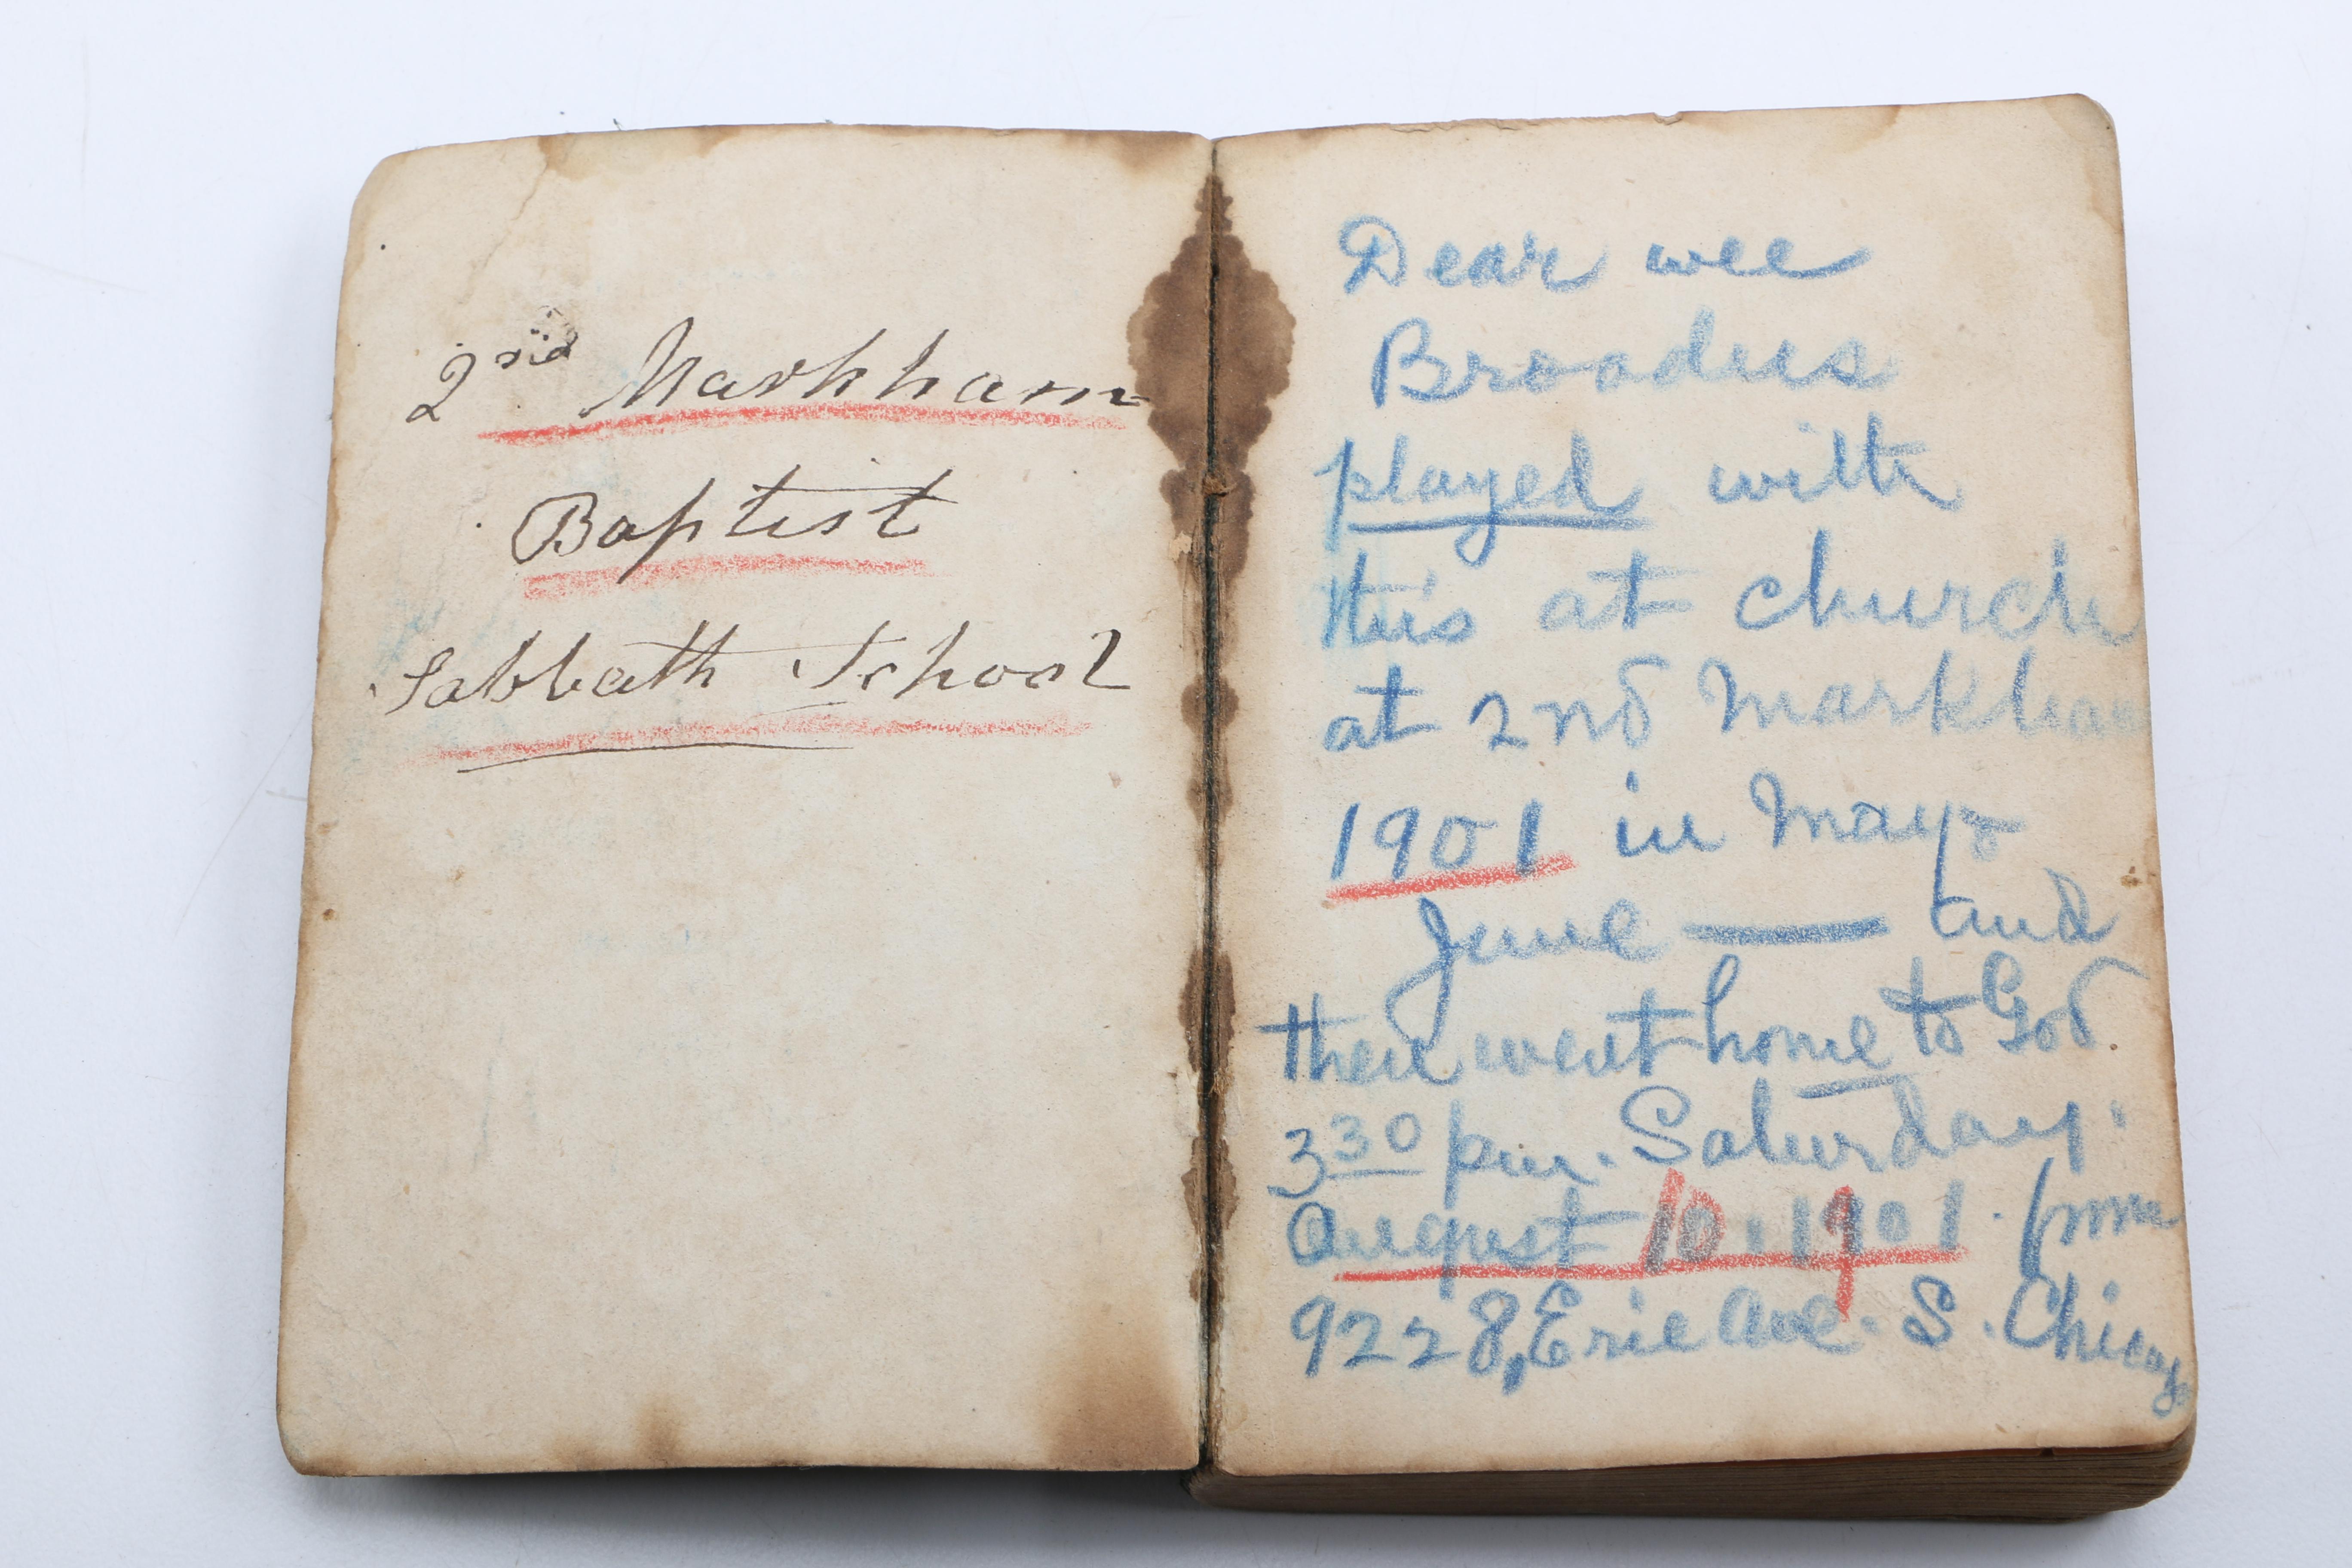 2nd Markham
Baptist
Sabbath School
Dear wee
Broadus
played with
this at church
at 2nd Markham
1901 in May &
June — and
then went home to God
3 30 p.m. Saturday.
August 10, 1901. from
9228, Erie Ave. S. Chicago